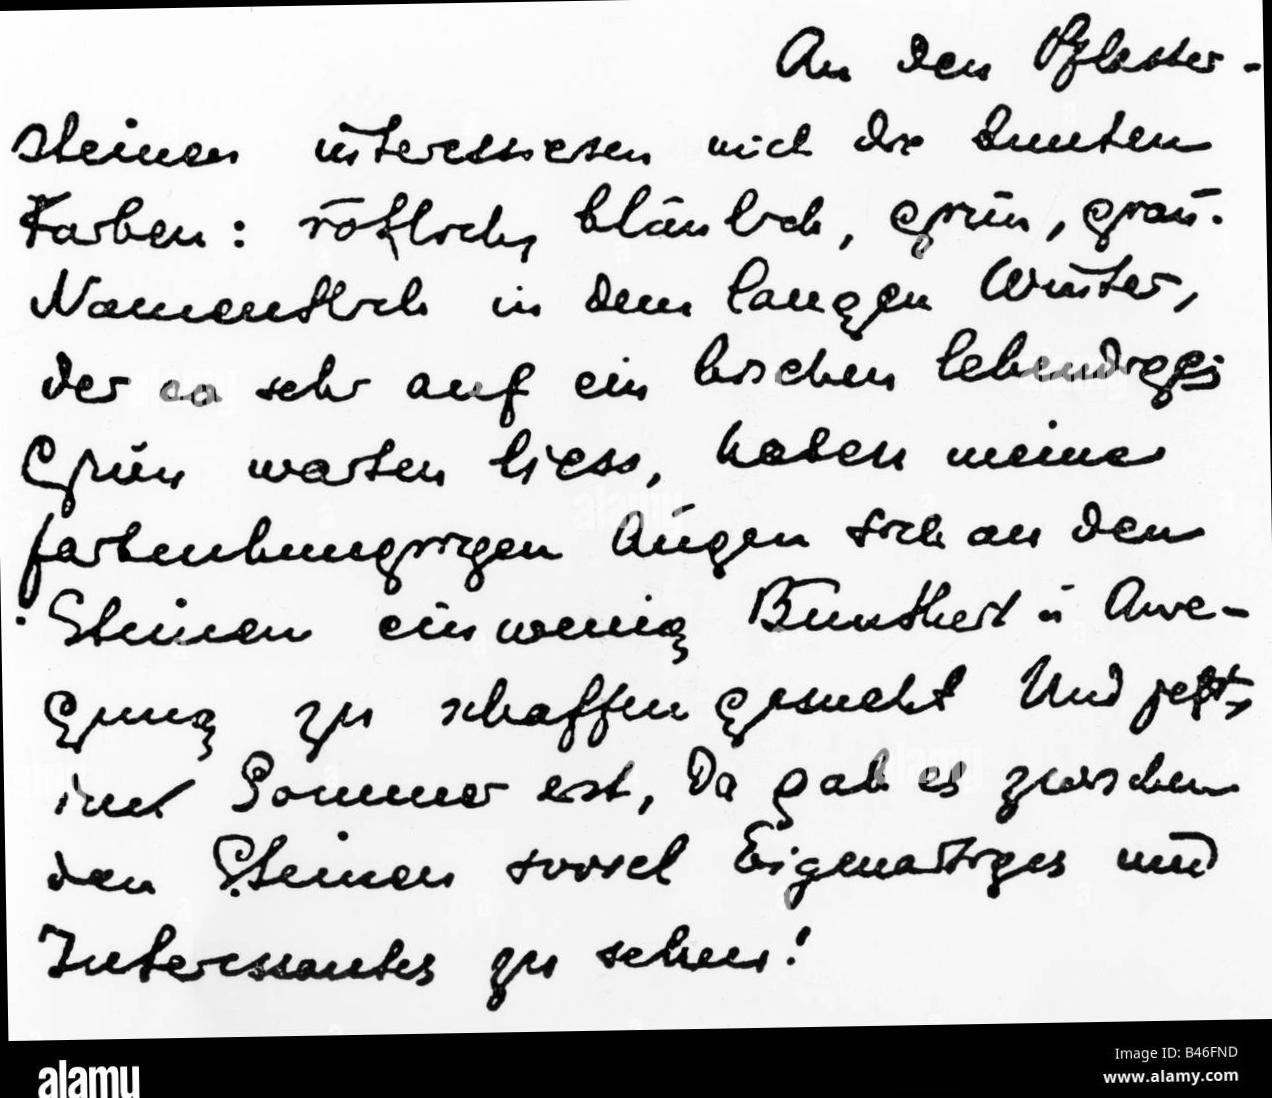 An den Pflaster-
steinen interessieren mich die bunten
Farben: rötlich, bläulich, grün, grau.
Namentlich in dem langen Winter,
der so sehr auf ein bischen lebendiges
Grün warten liess, haben meine
farbenhungrigen Augen sich an den
Steinen ein wenig Buntheit u Anre-
gung zu schaffen gesucht Und jetzt,
im Sommer erst, Da gab es zwischen
den Steinen soviel Eigenartiges und
Interessantes zu sehen!
alamy
Image ID: B46FND
www.alamy.com